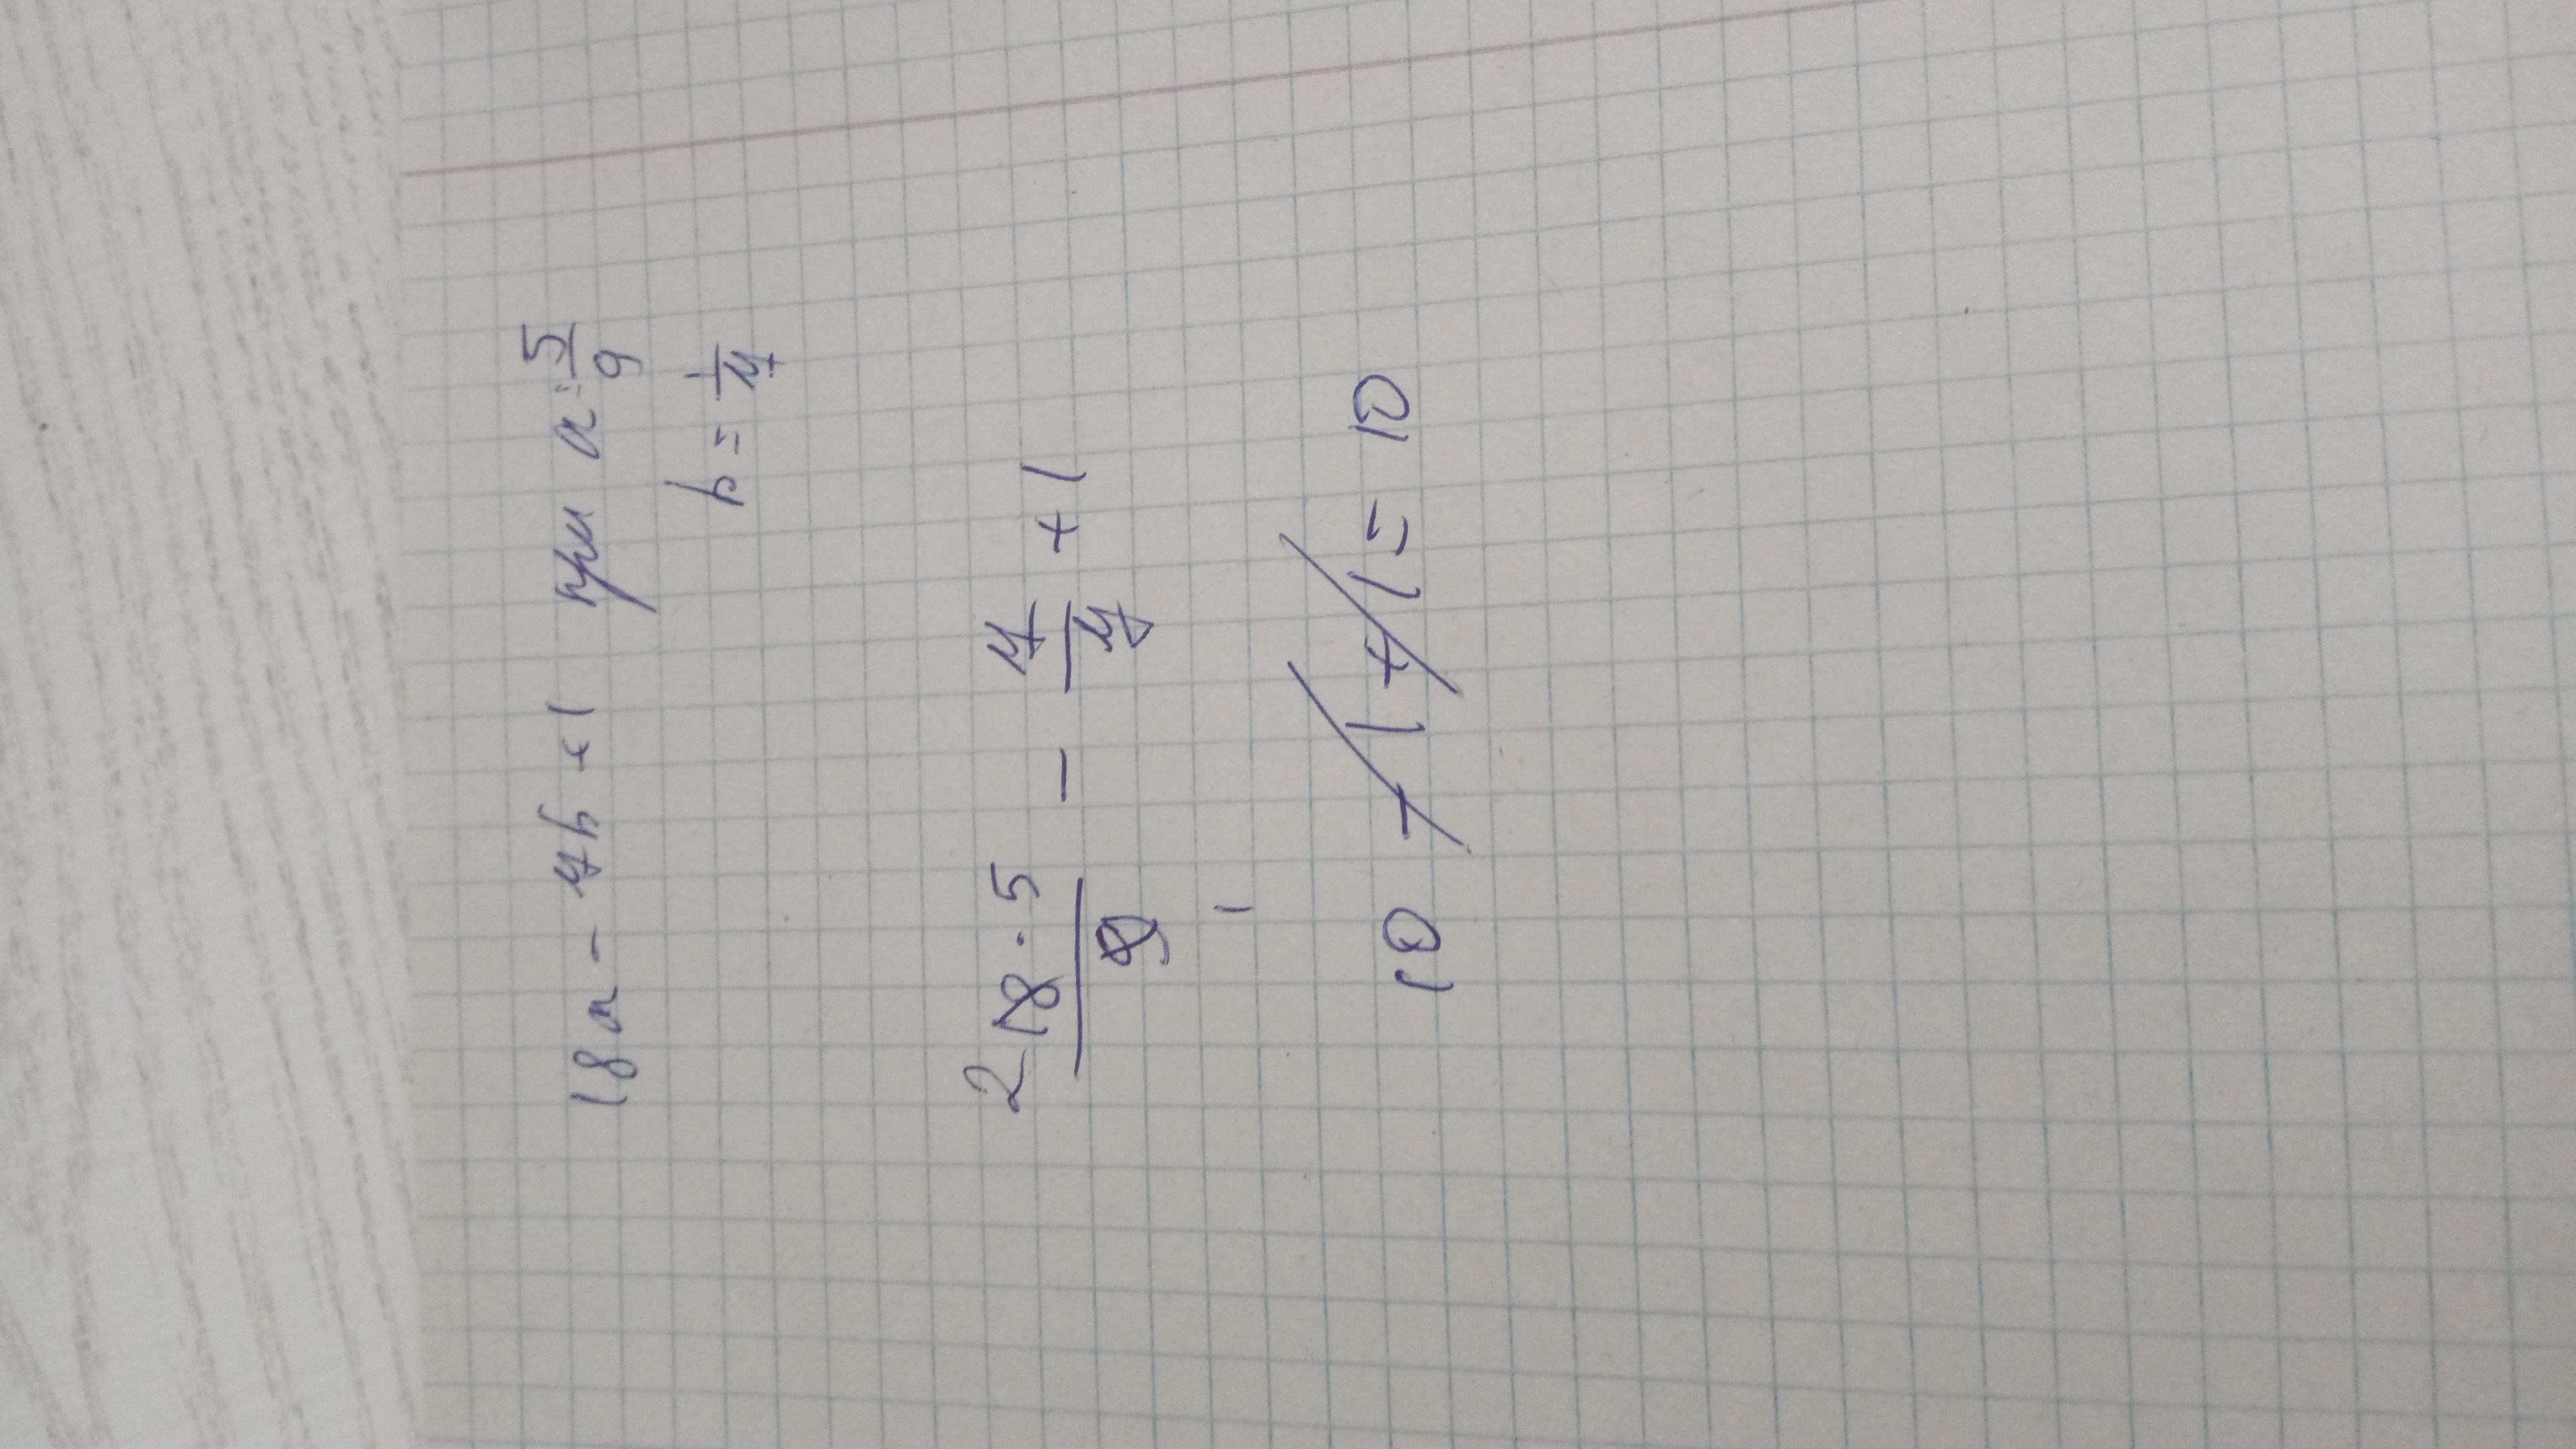 18a - 4b + 1 при a = 5/9
b = 1/4
2 18 · 5 / 9 1 - 4/4 + 1
10 - 1 + 1 = 10